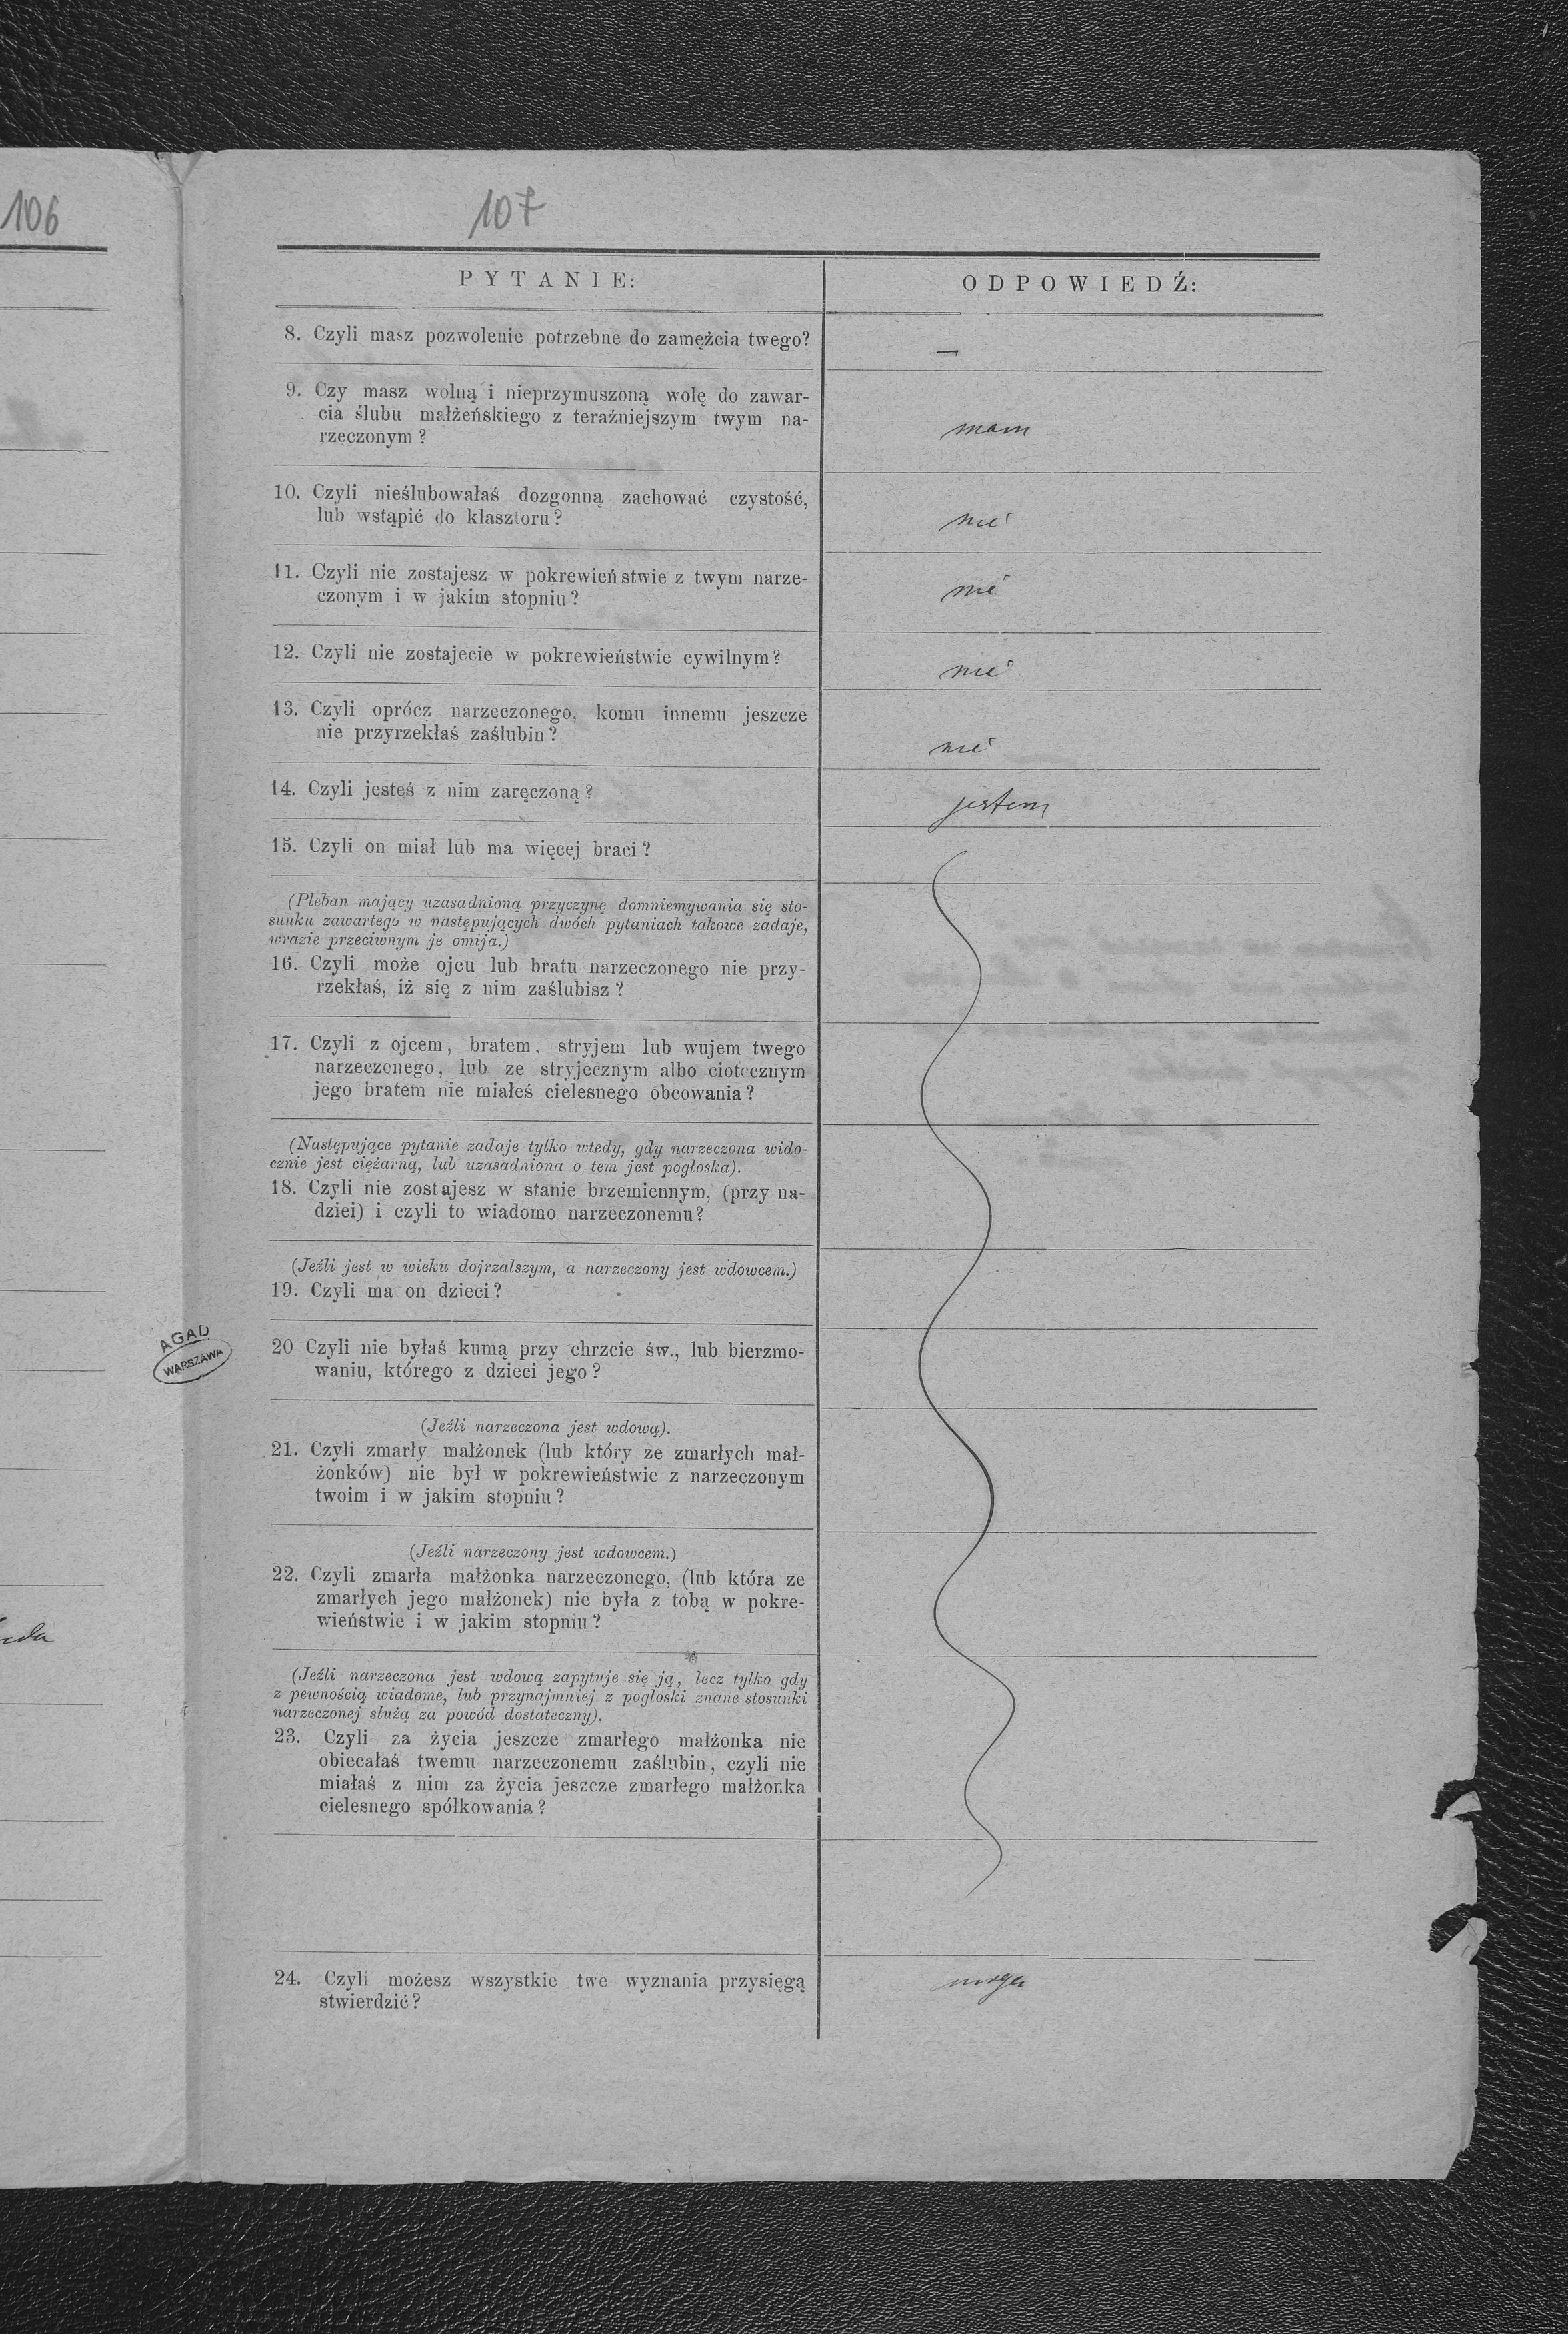 106
107
PYTANIE:
ODPOWIEDŹ:
8. Czyli masz pozwolenie potrzebne do zamężcia twego?
—
9. Czy masz wolną i nieprzymuszoną wolę do zawar-
cia ślubu małżeńskiego z teraźniejszym twym na-
rzeczonym?
mam
10. Czyli nieślubowałaś dozgonną zachować czystość,
lub wstąpić do klasztoru?
nie
11. Czyli nie zostajesz w pokrewieństwie z twym narze-
czonym i w jakim stopniu?
nie
12. Czyli nie zostajecie w pokrewieństwie cywilnym?
nie
13. Czyli oprócz narzeczonego, komu innemu jeszcze
nie przyrzekłaś zaślubin?
nie
14. Czyli jesteś z nim zaręczoną?
jestem
15. Czyli on miał lub ma więcej braci?
(Pleban mający uzasadnioną przyczynę domniemywania się sto-
sunku zawartego w następujących dwóch pytaniach takowe zadaje,
wrazie przeciwnym je omija.)
16. Czyli może ojcu lub bratu narzeczonego nie przy-
rzekłaś, iż się z nim zaślubisz?
17. Czyli z ojcem, bratem, stryjem lub wujem twego
narzeczonego, lub ze stryjecznym albo ciotecznym
jego bratem nie miałeś cielesnego obcowania?
(Następujące pytanie zadaje tylko wtedy, gdy narzeczona wido-
cznie jest ciężarną, lub uzasadniona o tem jest pogłoska).
18. Czyli nie zostajesz w stanie brzemiennym, (przy na-
dziei) i czyli to wiadomo narzeczonemu?
(Jeźli jest w wieku dojrzalszym, a narzeczony jest wdowcem.)
19. Czyli ma on dzieci?
AGAD
WARSZAWA
20 Czyli nie byłaś kumą przy chrzcie św., lub bierzmo-
waniu, którego z dzieci jego?
(Jeźli narzeczona jest wdową).
21. Czyli zmarły małżonek (lub który ze zmarłych mał-
żonków) nie był w pokrewieństwie z narzeczonym
twoim i w jakim stopniu?
(Jeźli narzeczony jest wdowcem.)
22. Czyli zmarła małżonka narzeczonego, (lub która ze
zmarłych jego małżonek) nie była z tobą w pokre-
wieństwie i w jakim stopniu?
(Jeźli narzeczona jest wdową zapytuje się ją, lecz tylko gdy
z pewnością wiadome, lub przynajmniej z pogłoski znane stosunki
narzeczonej służą za powód dostateczny).
23. Czyli za życia jeszcze zmarłego małżonka nie
obiecałaś twemu narzeczonemu zaślubin, czyli nie
miałaś z nim za życia jeszcze zmarłego małżonka
cielesnego spółkowania?
24. Czyli możesz wszystkie twe wyznania przysięgą
stwierdzić?
mogę